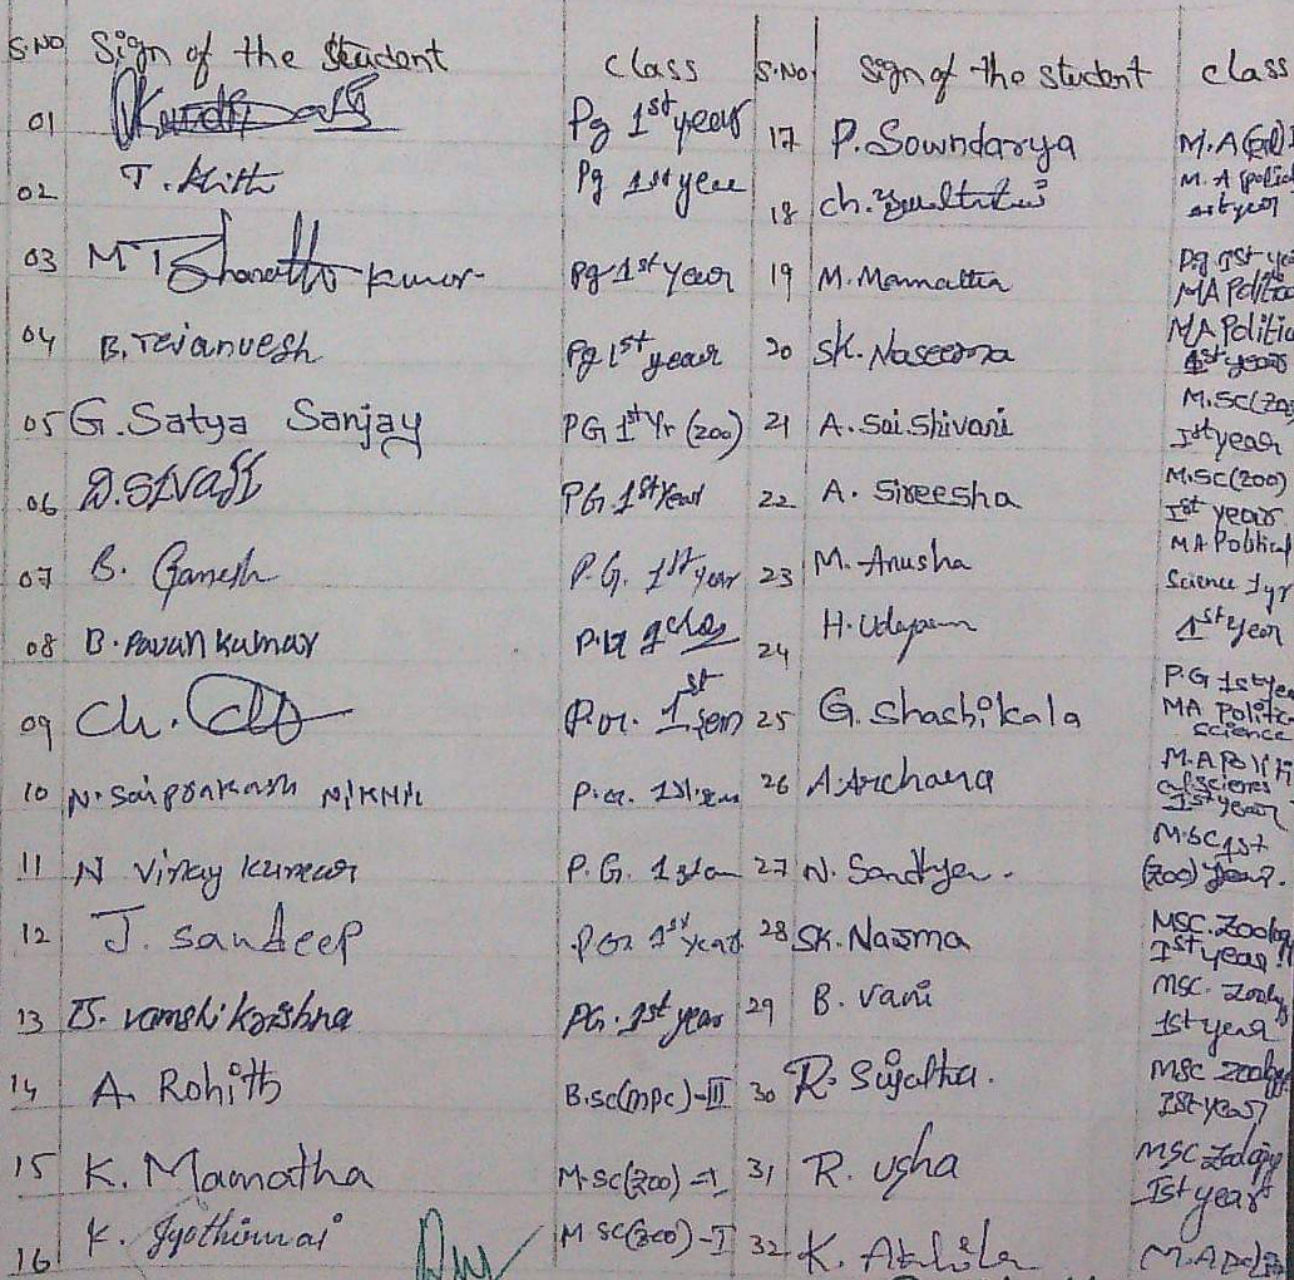 S.NO Sign of the Student class S.No. Sign of the student class
01 Pg 1st year 17 P. Sowndarya M.A
02 T. Pg 1st year 18 ch. M.A 1st year
03 M T Bharath Kumar Pg 1st Year 19 M. Mamatha Pg 1st MA
04 B. Tejanvesh Pg 1st year 20 SK. Naseema MA 1st years
05 G. Satya Sanjay PG 1st Yr (zoo) 21 A. Sai Shivani M.SC Ist year
06 D. SIVAJI PG. 1st Year 22 A. Sireesha M.SC (zoo) Ist year
07 B. Ganesh P.G. 1st year 23 M. Anusha MA Political Science 1yr
08 B. Pavan Kumar 24 H. 1st year
09 Ch. 1st sem 25 G. Shashikala P.G 1st MA science
10 N. Saiprakash 26 A. Archana M.A 1st year
11 N Vinay Kumar P.G. 27 N. Sandhya. M.SC 1st (zoo) year.
12 J. Sandeep PG 1st year 28 SK. Nasma MSC. Ist year
13 B. Vamshi Krishna PG. 1st year 29 B. Vani MSC. 1st year
14 A. Rohith B.sc(mpc)-III 30 R. Sujatha. MSC Ist year
15 K. Mamatha M.SC(zoo) -I 31 R. Usha MSC Zoology Ist year
16 K. Jyothirmai M SC(zoo)-I 32 K. Akhila